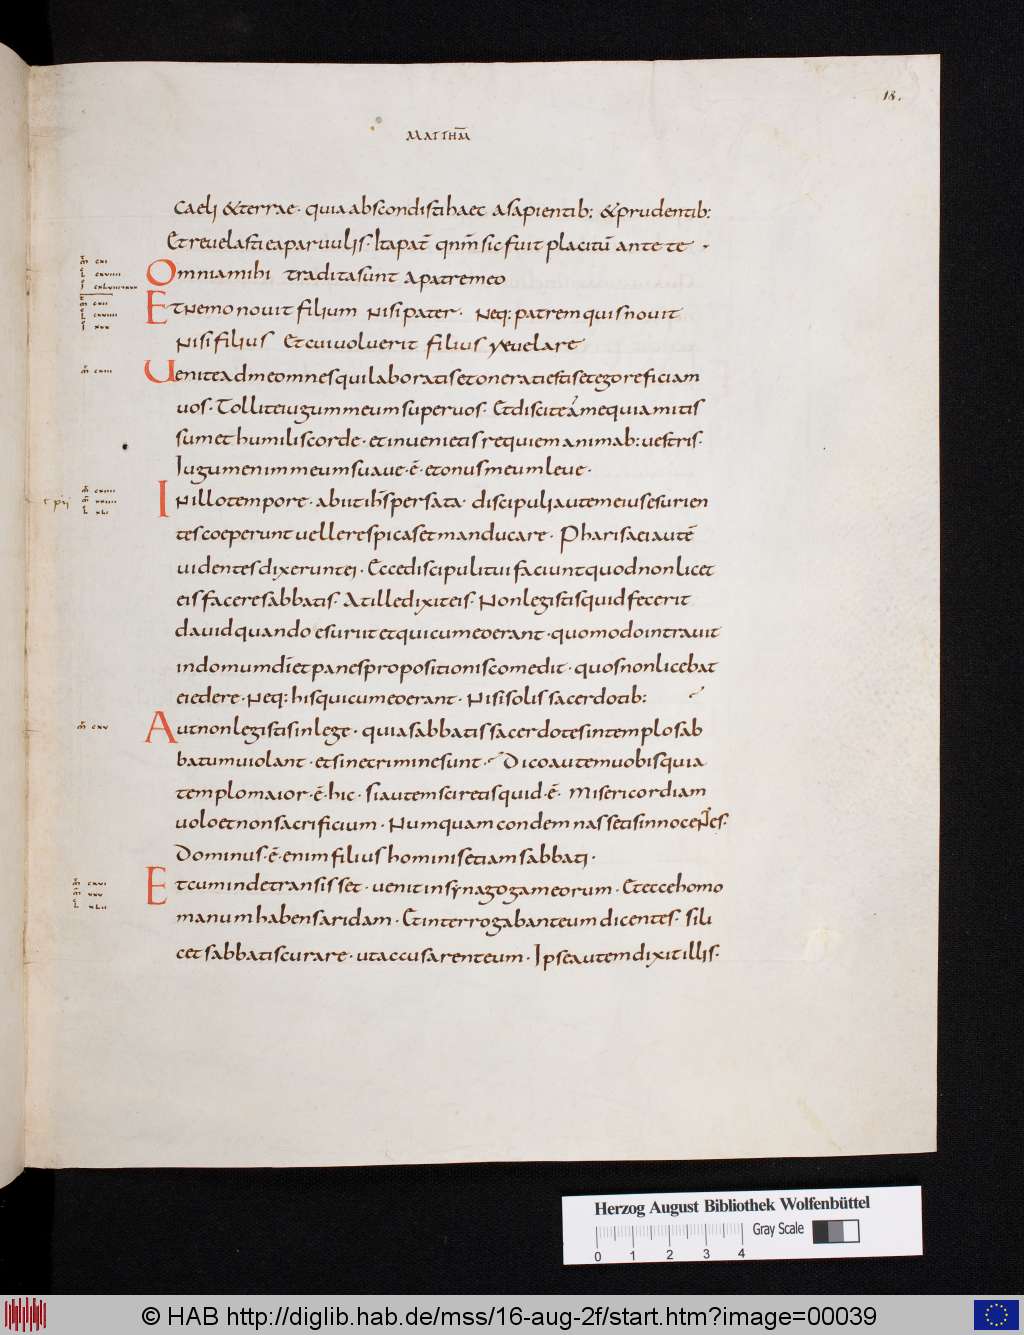 18.
MATTHM̄
caeli &terrae· quia abscondisti haec a sapientib: &prudentib:
Et reuelasti ea paruulis· Ita pat̄ qnm̄ sic fuit placitū ante te·
Omnia mihi tradita sunt a patre meo
Et nemo nouit filium nisi pater· neq: patrem quis nouit
nisi filius Et cui uoluerit filius reuelare
Uenite ad me omnes qui laboratis et onerati estis et ego reficiam
uos· Tollite iugum meum super uos· Et discite a me quia mitis
sum et humilis corde· et inuenietis requiem animab: uestris·
Iugum enim meum suaue·ē· et onus meum leue·
In illo tempore· abiit ih̄s per sata· discipuli autem eius esurien
tes coeperunt uellere spicas et manducare· Pharisaei autē
uidentes dixerunt ei· Ecce discipuli tui faciunt quod non licet
eis facere sabbatis· At ille dixit eis· Non legistis quid fecerit
dauid quando esuriit et qui cum eo erant· quomodo intrauit
in domum dī et panes propositionis comedit· quos non licebat
ei edere· Neq: his qui cum eo erant· Nisi solis sacerdotib:
Aut non legistis in lege· quia sabbatis sacerdotes in templo sab
batum uiolant· et sine crimine sunt· Dico autem uobis quia
templo maior·ē·hic· si autem sciretis quid·ē· Misericordiam
uolo et non sacrificium· Numquam condemnassetis innocentes·
Dominus·ē·enim filius hominis etiam sabbati·
Et cum inde transisset· uenit in synagogam eorum· Et ecce homo
manum habens aridam· Et interrogabant eum dicentes· si li
cet sabbatis curare· ut accusarent eum· Ipse autem dixit illis·
Herzog August Bibliothek Wolfenbüttel
Gray Scale
0 1 2 3 4
© HAB http://diglib.hab.de/mss/16-aug-2f/start.htm?image=00039